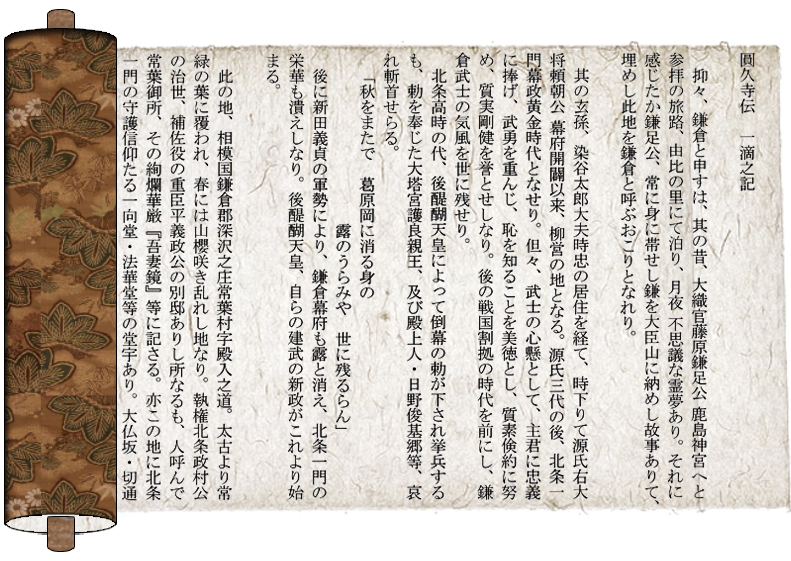 圓久寺伝　一滴之記
抑々、鎌倉と申すは、其の昔、大織官藤原鎌足公 鹿島神宮へと
参拝の旅路、由比の里にて泊り、月夜 不思議な霊夢あり。それに
感じたか鎌足公、常に身に帯せし鎌を大臣山に納めし故事ありて、
埋めし此地を鎌倉と呼ぶおこりとなれり。
其の玄孫、染谷太郎大夫時忠の居住を経て、時下りて源氏右大
将頼朝公 幕府開闢以来、柳営の地となる。源氏三代の後、北条一
門幕政黄金時代となせり。但々、武士の心懸として、主君に忠義
に捧げ、武勇を重んじ、恥を知ることを美徳とし、質素倹約に努
め、質実剛健を誉とせしなり。後の戦国割拠の時代を前にし、鎌
倉武士の気風を世に残せり。
北条高時の代、後醍醐天皇によって倒幕の勅が下され挙兵する
も、勅を奉じた大塔宮護良親王、及び殿上人・日野俊基郷等、哀
れ斬首せらる。
「秋をまたで　葛原岡に消る身の
露のうらみや　世に残るらん」
後に新田義貞の軍勢により、鎌倉幕府も露と消え、北条一門の
栄華も潰えしなり。後醍醐天皇、自らの建武の新政がこれより始
まる。
此の地、相模国鎌倉郡深沢之庄常葉村字殿入之道。太古より常
緑の葉に覆われ、春には山櫻咲き乱れし地なり。執権北条政村公
の治世、補佐役の重臣平義政公の別邸ありし所なるも、人呼んで
常葉御所、その絢爛華厳『吾妻鏡』等に記さる。亦この地に北条
一門の守護信仰たる一向堂・法華堂等の堂宇あり。大仏坂・切通